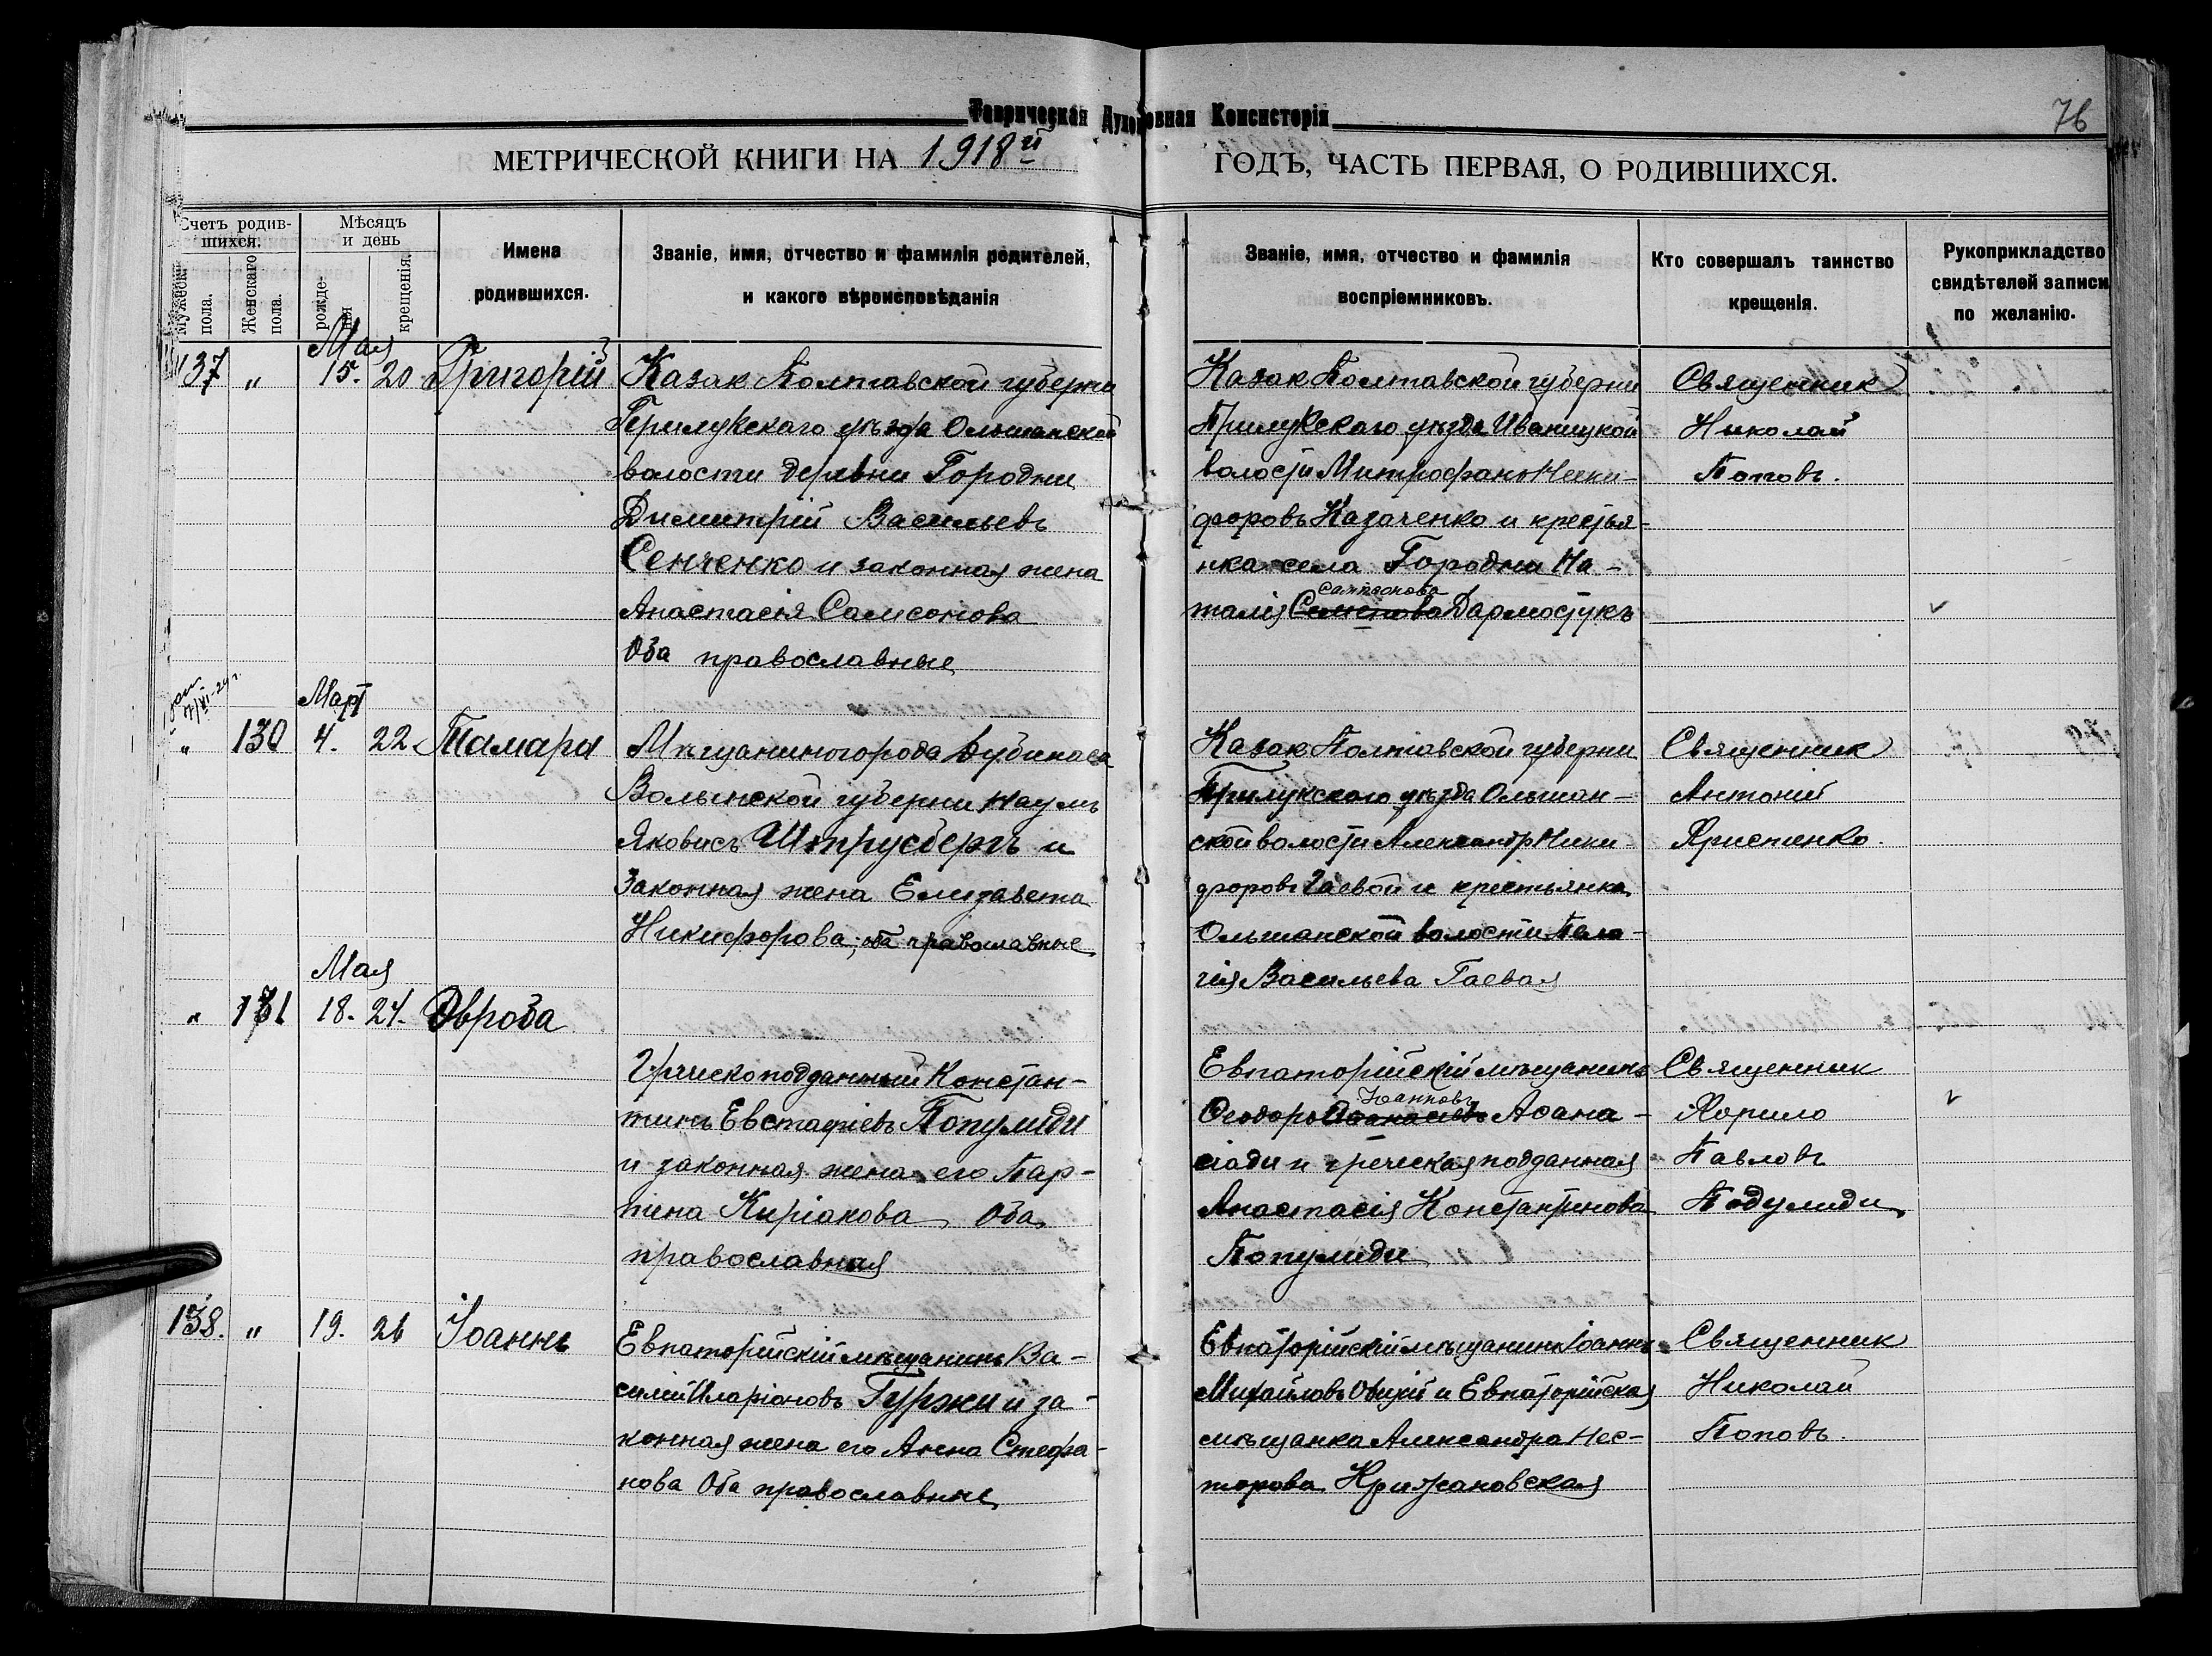 Таврическая Духовная Консисторія
76
МЕТРИЧЕСКОЙ КНИГИ НА 1918й ГОДЪ, ЧАСТЬ ПЕРВАЯ, О РОДИВШИХСЯ.
Счетъ родив-
шихся.
Мужески
пола.
Женскаго
пола.
Мѣсяцъ
и день
рожде-
нія
крещенія.
Имена
родившихся.
Званіе, имя, отчество и фамилія родителей,
и какого вѣроисповѣданія
Званіе, имя, отчество и фамилія
воспріемниковъ.
Кто совершалъ таинство
крещенія.
Рукоприкладство
свидѣтелей записи
по желанію.
Мая
137 " 15. 20 Григорій
Казак Полтавской губерни
Прилукскаго уѣзда Ольшанской
волости деревни Городни
Димитрій Васильевъ
Сенченко и законная жена
Анастасія Самсонова
Оба православные
Казак Полтавской губерни
Прилукскаго уѣзда Иваницкой
волости Митрофанъ Ники-
форовъ Казаченко и крестья-
нка села Городни На-
Сампсонова
талія Семенова Дармостукъ
Священник
Николай
Поповъ.
Март
" 130 4. 22 Тамара
Мѣщанинъ города Дубинаса
Волынской губерни Наумъ
Яковисъ Штрусбергъ и
Законная жена Елизавета
Никифорова; оба православные
Казак Полтавской губерни
Прилукскаго уѣзда Ольшан-
ской волости Александр Ники-
форовъ Гаевой и крестьянка
Ольшанской волости Пела-
гія Васильева Гаевая
Священник
Антоній
Аристенко.
Мая
" 131 18. 24. Övроба
Греческоподданный Констан-
тинъ Евстафіевъ Популиди
и законная жена его Пар-
тена Киріакова Оба
православная
Евпаторійскій мѣщанинъ
Іоанновъ
Ѳеодоръ Аѳанасіевъ Аѳана-
сіади и греческая подданная
Анастасія Константинова
Популиди
Священник
Кирило
Павловъ
Подулиди
138. " 19. 26 Іоаннъ
Евпаторійскій мѣщанинъ Ва-
силій Иларіоновъ Гуржи и за-
конная жена его Анна Стефа-
нова Оба православные
Евпаторійскій мѣщанинъ Іоаннъ
Михайловъ и Евпаторійская
мѣщанка Александра Нес-
торова Крижановская
Священник
Николай
Поповъ.